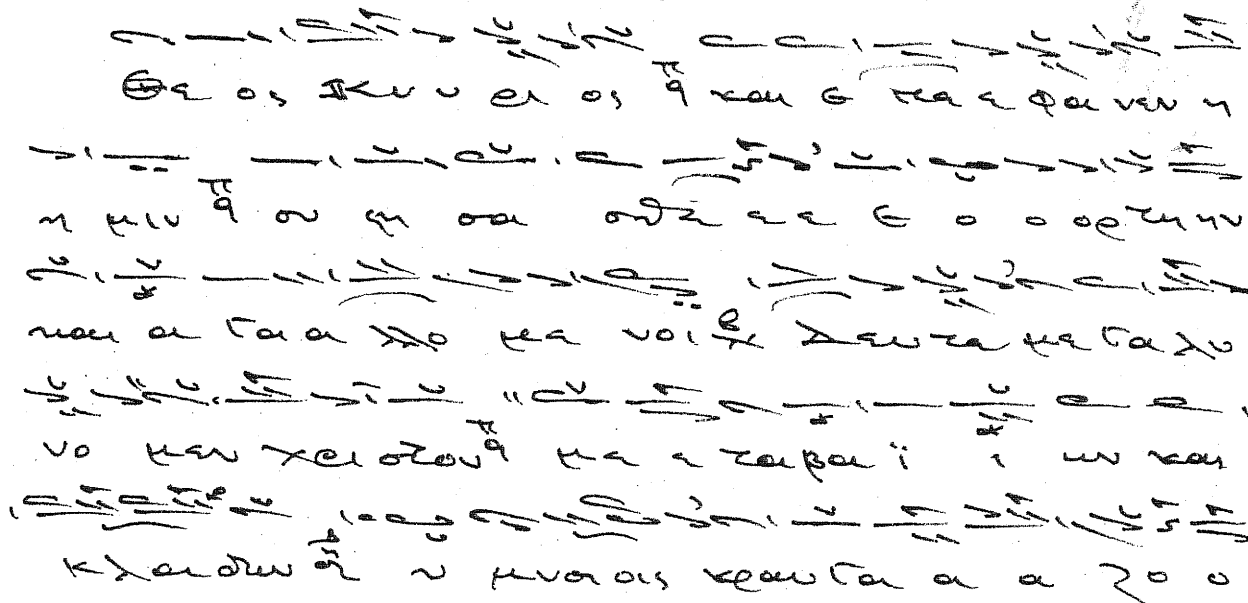 Θε ος Κυ υ ρι ος πα και ε πε ε φα νεν η
η μιν πα συ στη σα σθε ε ε ε ο ο ορ την
και α γα α λλο με νοι Δευ τε με γα λυ
νο μεν Χρι στον πα με ε τα βα ϊ ι ων και
κλα δων υ μνοις κραυ γα α α ζο ο